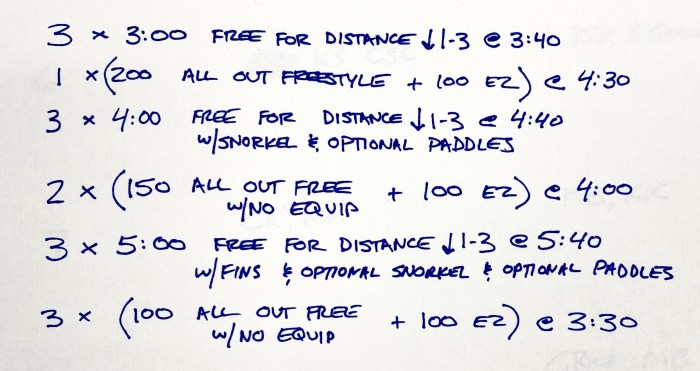 3 × 3:00 FREE FOR DISTANCE ↓1-3 @ 3:40
1 × (200 ALL OUT FREESTYLE + 100 EZ) @ 4:30
3 × 4:00 FREE FOR DISTANCE ↓1-3 @ 4:40
W/SNORKEL & OPTIONAL PADDLES
2 × (150 ALL OUT FREE + 100 EZ) @ 4:00
W/NO EQUIP
3 × 5:00 FREE FOR DISTANCE ↓1-3 @ 5:40
W/FINS & OPTIONAL SNORKEL & OPTIONAL PADDLES
3 × (100 ALL OUT FREE + 100 EZ) @ 3:30
W/NO EQUIP